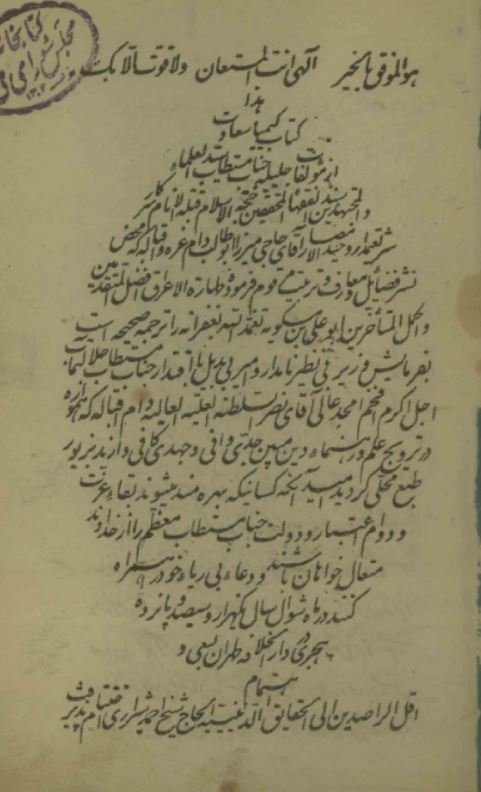 کتابخانه
مجلس شورای ملی
هو الموفق بالخیر الهی انت المستعان ولا قوة الا بک
هذا
کتاب کیمیا سعادت
از مؤلفات جلیله جناب مستطاب سید العلماء
والمجتهدین سند الفقهاء المحققین حجة الاسلام قبلة الانام سرکار
شریعتمدار آقای حاجی میرزا ابوطالب دام عزه و اقباله که محض
نشر فضایل و معارف و تربیت مردم فرموده طهارة الاعراق افضل المتقدمین
واکمل المتأخرین ابو علی بن مسکویه تغمده الله بغفرانه را ترجمه صحیحه است
بفرمایش وزیر بی نظیر نامدار و امیر بی بدیل با اقتدار جناب مستطاب جلالتمآب
اجل اکرم افخم امجد عالی آقای نصر السلطنه العلیة العالیه دام اقباله که همواره
در ترویج علم و رهنماء دین مبین جدی وافی و جهدی کافی دارند بزیور
طبع محلی گردید امید آنکه کسانیکه بهره مند میشوند بقاء عزت
و دوام اعتبار و دولت جناب مستطاب معظم را از خداوند
متعال خواهان باشند و دعاء بی ریاء خود را همراه
کنند در ماه شوال سال یکهزار و سیصد و پانزده
هجری در دار الخلافه طهران بسعی و
اهتمام
اقل الراصدین الی الحقایق الدینیه الحاج شیخ احمد شیرازی اختتام پذیرفت